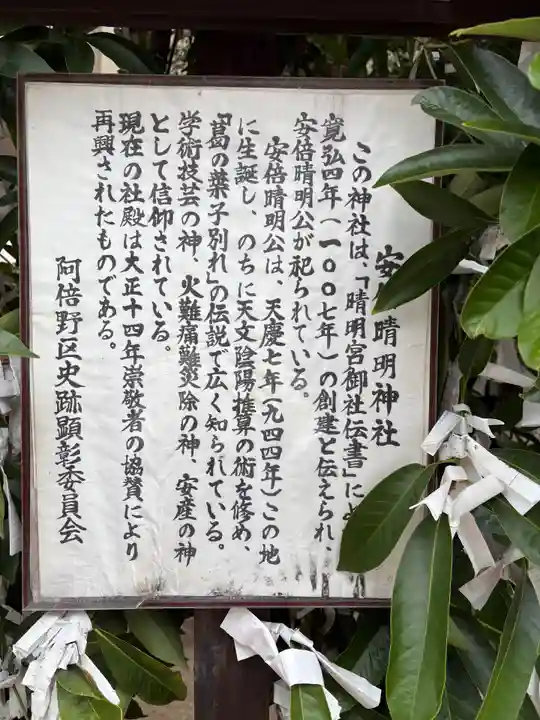 安倍晴明神社
この神社は、「晴明宮御社伝書」によ
寛弘四年(一〇〇七年)の創建と伝えられ、
安倍晴明公が祀られている。
安倍晴明公は、天慶七年(九四四年)この地
に生誕し、のちに天文陰陽推算の術を修め、
「葛の葉子別れ」の伝説で広く知られている。
学術技芸の神、火難痛難災除の神、安産の神
として信仰されている。
現在の社殿は大正十四年崇敬者の協賛により
再興されたものである。
阿倍野区史跡顕彰委員会